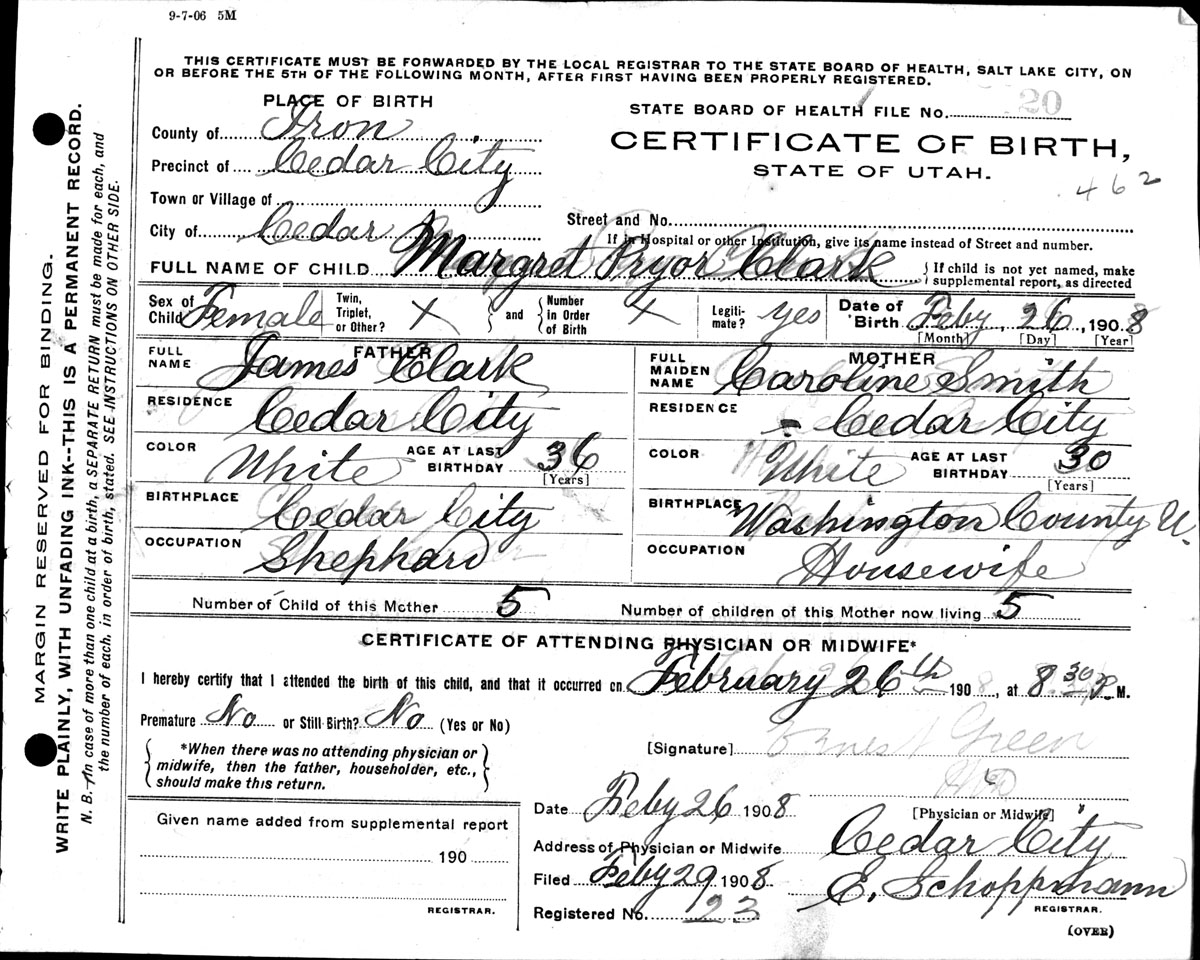 9-7-06 5M
THIS CERTIFICATE MUST BE FORWARDED BY THE LOCAL REGISTRAR TO THE STATE BOARD OF HEALTH, SALT LAKE CITY, ON
OR BEFORE THE 5TH OF THE FOLLOWING MONTH, AFTER FIRST HAVING BEEN PROPERLY REGISTERED.
PLACE OF BIRTH
STATE BOARD OF HEALTH FILE No. 20
County of Iron
CERTIFICATE OF BIRTH,
Precinct of Cedar City
STATE OF UTAH.
462
Town or Village of
Street and No.
City of Cedar
If in Hospital or other Institution, give its name instead of Street and number.
FULL NAME OF CHILD Margret Pryor Clark { If child is not yet named, make
supplemental report, as directed
Sex of Child Female Twin, Triplet, or Other? X } and { Number in Order of Birth X Legiti-mate? yes Date of Birth Feby. 26, 1908
[Month] [Day] [Year]
FATHER
MOTHER
FULL NAME James Clark
FULL MAIDEN NAME Caroline Smith
RESIDENCE Cedar City
RESIDENCE Cedar City
COLOR White AGE AT LAST BIRTHDAY 36 [Years]
COLOR White AGE AT LAST BIRTHDAY 30 [Years]
BIRTHPLACE Cedar City
BIRTHPLACE Washington County U.
OCCUPATION Shephard
OCCUPATION Housewife
Number of Child of this Mother 5 Number of children of this Mother now living 5
CERTIFICATE OF ATTENDING PHYSICIAN OR MIDWIFE*
I hereby certify that I attended the birth of this child, and that it occurred on February 26th 1908, at 8 30 P. M.
Premature No or Still Birth? No (Yes or No)
{ *When there was no attending physician or
midwife, then the father, householder, etc.,
should make this return. }
[Signature] Ernest Green
MD
[Physician or Midwife]
Date Feby 26 1908
Given name added from supplemental report
190
REGISTRAR.
Address of Physician or Midwife Cedar City
Filed Feby 29 1908 E. Schoppmann
REGISTRAR.
Registered No. 23
(OVER)
MARGIN RESERVED FOR BINDING.
WRITE PLAINLY, WITH UNFADING INK--THIS IS A PERMANENT RECORD.
N. B.-In case of more than one child at a birth, a SEPARATE RETURN must be made for each, and
the number of each, in order of birth, stated. SEE INSTRUCTIONS ON OTHER SIDE.